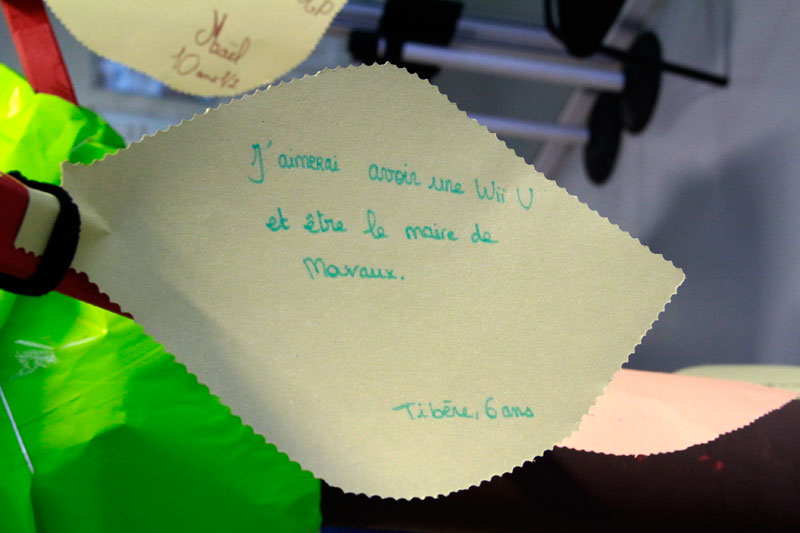 Maël
10 ans 1/2
J'aimerai avoir une Wii U
et être le maire de
Mavaux.
Tibère, 6 ans